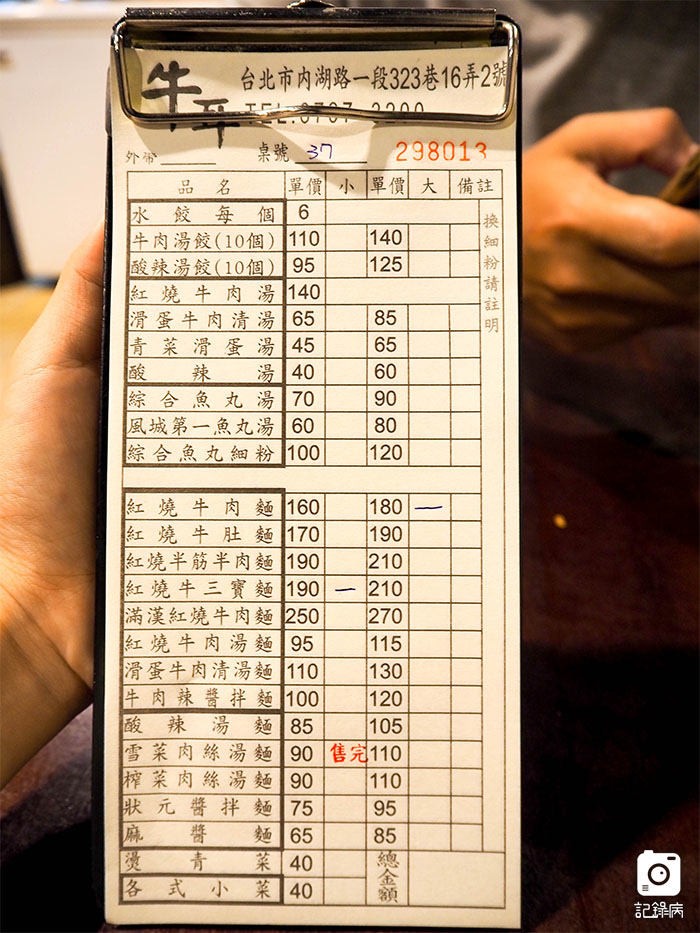 台北市內湖路一段323巷16弄2號
外帶 桌號 37 298013
品名 單價 小 單價 大 備註
水餃每個 6
換細粉請註明
牛肉湯餃(10個) 110 140
酸辣湯餃(10個) 95 125
紅燒牛肉湯 140
滑蛋牛肉清湯 65 85
青菜滑蛋湯 45 65
酸辣湯 40 60
綜合魚丸湯 70 90
風城第一魚丸湯 60 80
綜合魚丸細粉 100 120
紅燒牛肉麵 160 180 一
紅燒牛肚麵 170 190
紅燒半筋半肉麵 190 210
紅燒牛三寶麵 190 一 210
滿漢紅燒牛肉麵 250 270
紅燒牛肉湯麵 95 115
滑蛋牛肉清湯麵 110 130
牛肉辣醬拌麵 100 120
酸辣湯麵 85 105
雪菜肉絲湯麵 90 售完 110
榨菜肉絲湯麵 90 110
狀元醬拌麵 75 95
麻醬麵 65 85
燙青菜 40 總金額
各式小菜 40
記錄病